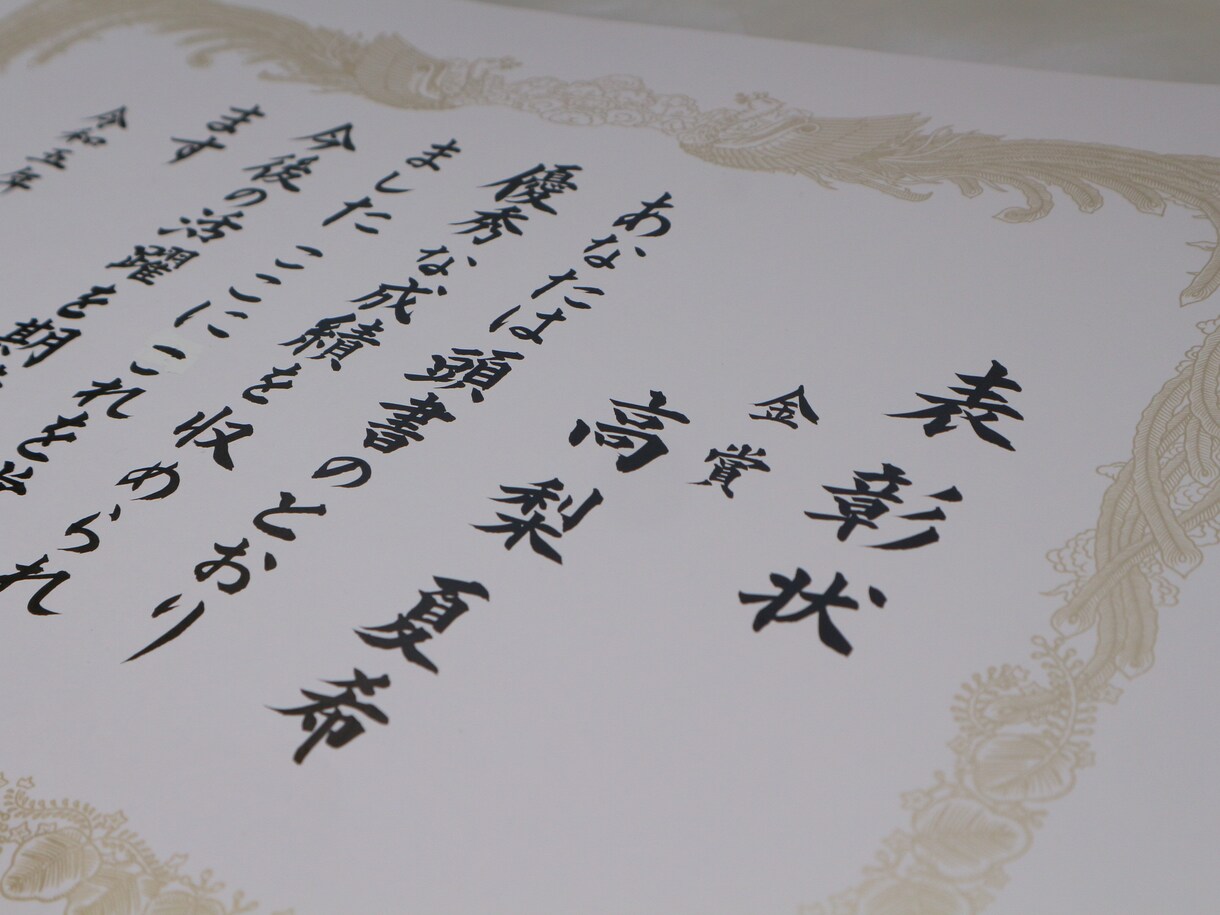 表彰状
金賞
高梨 夏希
あなたは頭書のとおり
優秀な成績を収められ
ました ここにこれを
今後の活躍を期
ます
令和五年